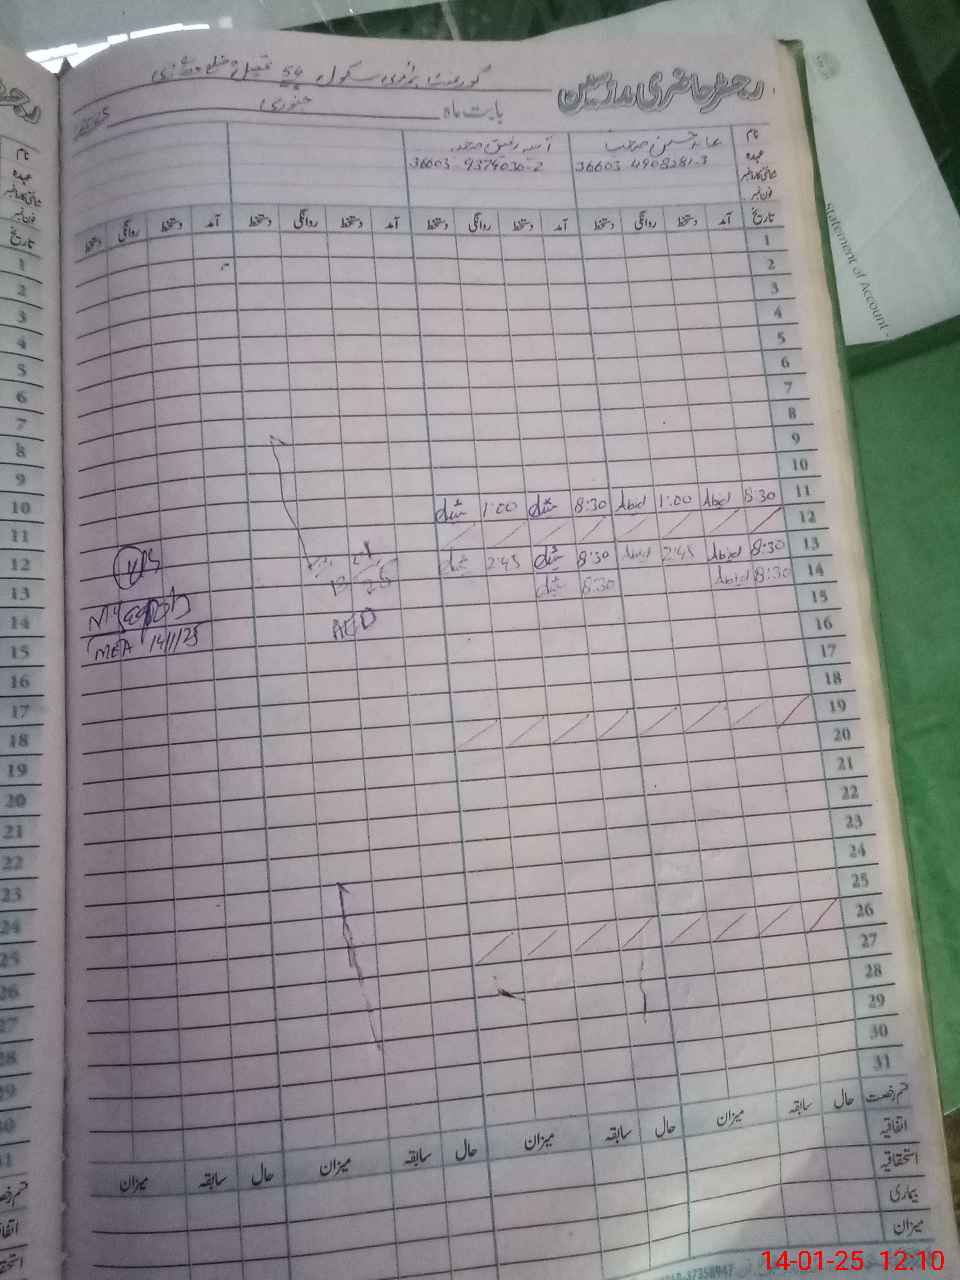 رجسٹر حاضری مدرسین
گورنمنٹ پرائمری سکول 54
بابت ماہ جنوری
نام عابد حسین صاحب
عہدہ
36603-4908281-3 36603-9374030-2
فون نمبر
تاریخ آمد دستخط روانگی دستخط آمد دستخط روانگی دستخط آمد دستخط روانگی دستخط آمد دستخط روانگی دستخط
1
2
3
4
5
6
7
8
9
10
11 8:30 Abid 1:00 Abid 8:30 1:00
12
13 8:30 Abid 2:45 Abid 8:30 2:45
14 8:30 Abid 8:30
15
AEO
MEA 14/1/25
16
17
18
19
20
21
22
23
24
25
26
27
28
29
30
31
قسم رخصت حال سابقہ میزان حال سابقہ میزان حال سابقہ میزان حال سابقہ میزان
اتفاقیہ
استحقاقیہ
بیماری
میزان
تاریخ
1
2
3
4
5
6
7
8
9
10
11
12
13
14
15
16
17
18
19
20
21
22
23
24
25
26
27
28
29
30
Statement of Account -
37358947
14-01-25 12:10